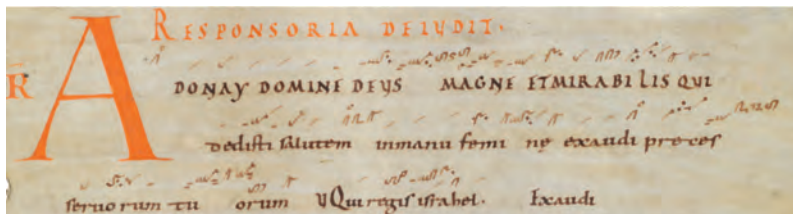 RESPONSORIA DE IUDIT.
R ADONAY DOMINE DEUS MAGNE ET MIRABILIS QUI
dedisti salutem in manu femine exaudi preces
servorum tuorum V Qui regis israhel. Exaudi